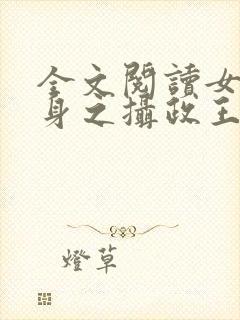 全文閱讀女
身之攝政王
燈草